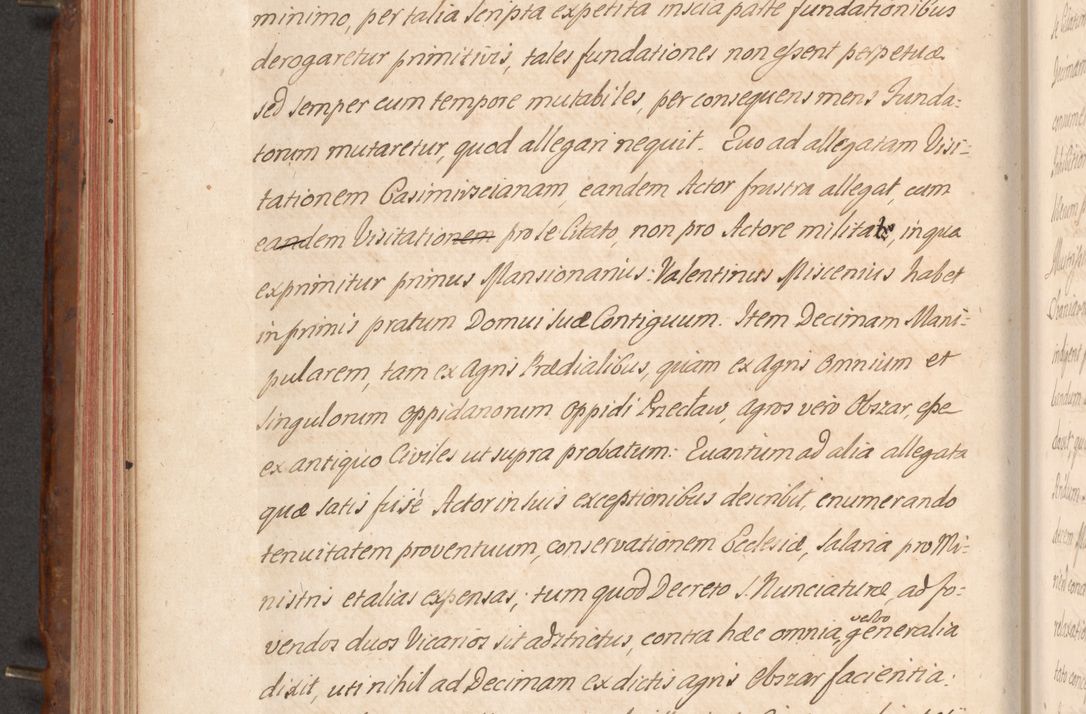 minimo, per talia scripta expetita inscia parte fundationibus
derogaretur primitivis, tales fundationes non essent perpetuæ
sed semper cum tempore mutabiles, per consequens mens Funda:
torum mutaretur, quod allegari nequit. Quo ad allegatam Visi:
tationem Casimirscianam, eandem Actor frustra allegat, cum
eandem Visitationem pro se Citato, non pro Actore militat, in qua
exprimitur primus Mansionarius: Valentinus Miscenius habet
inprimis pratum Domui suæ Contiguum. Item Decimam Mani:
pularem, tam ex Agris Prædialibus, quam ex Agris Omnium et
singulorum oppidanorum oppidi Precław, agros vero Obszar, esse
ex antiquo Civiles ut supra probatum. Quantum ad alia allegata
quæ satis fusè Actor in suis exceptionibus describit, enumerando
tenuitatem proventuum, conservationem Ecclesiæ, Salaria pro Mi:
nistris et alias expensas; tum quod Decreto S. Nunciaturæ, ad fo:
vendos duos Vicarios sit adstrictus, contra hæc omnia verbo generalia
dixit, uti nihil ad Decimam ex dictis agris Obszar facientia: